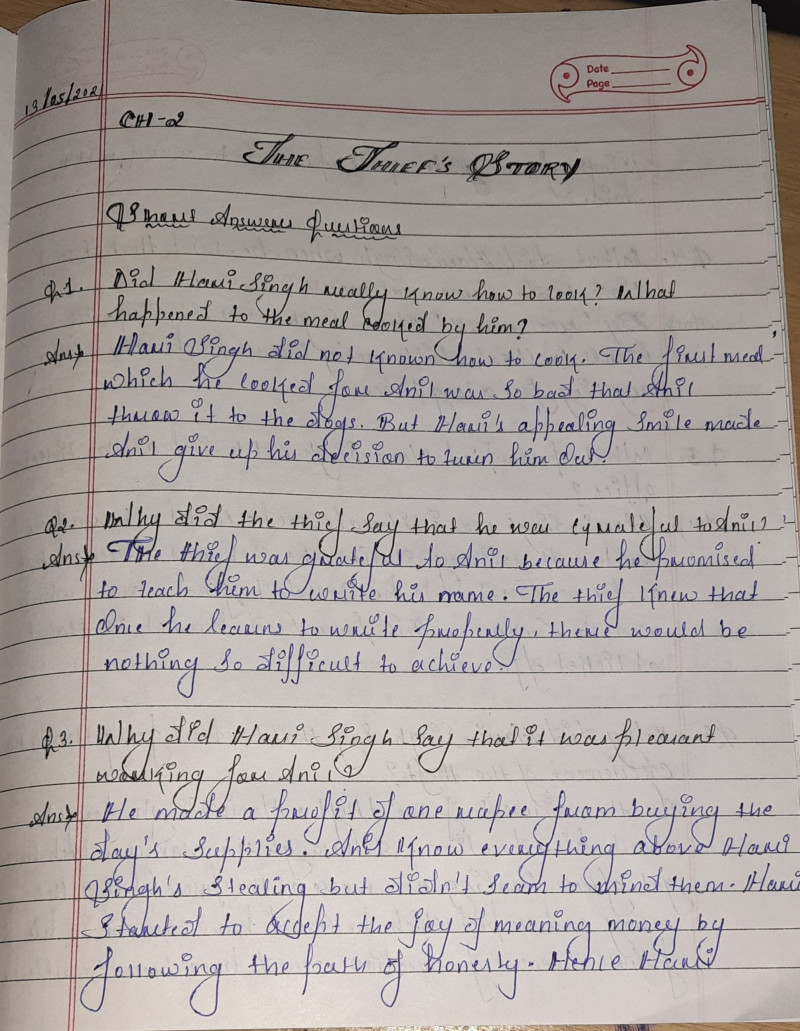 Date
Page
13/05/2021
CH-2
THE THIEF'S STORY
Short Answer Questions
Q1. Did Hari Singh really know how to cook? What
happened to the meal cooked by him?
Ans→ Hari Singh did not known how to cook. The first meal
which he cooked for Anil was so bad that Anil
throw it to the dogs. But Hari's appealing smile made
Anil give up his decision to turn him out.
Q2. Why did the thief say that he was grateful to Anil?
Ans→ The thief was grateful to Anil because he promised
to teach him to write his name. The thief knew that
once he learns to write properly, there would be
nothing so difficult to achieve.
Q3. Why did Hari Singh say that it was pleasant
working for Anil?
Ans→ He made a profit of one rupee from buying the
day's supplies. Anil know everything above Hari
Singh's stealing but didn't seam to mind them. Hari
started to accept the joy of meaning money by
following the path of honesty. Hence Hari